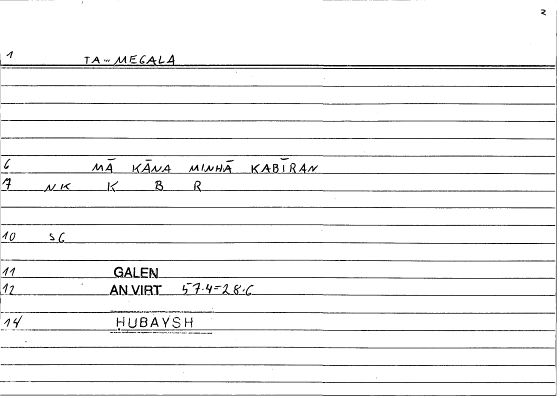 2
1 TA... MEGALA
6 MĀ KĀNA MINHĀ KABĪRAN
7 NK K B R
10 SG
11 GALEN
12 AN.VIRT 57.4=28.6
14 ḤUBAYSH